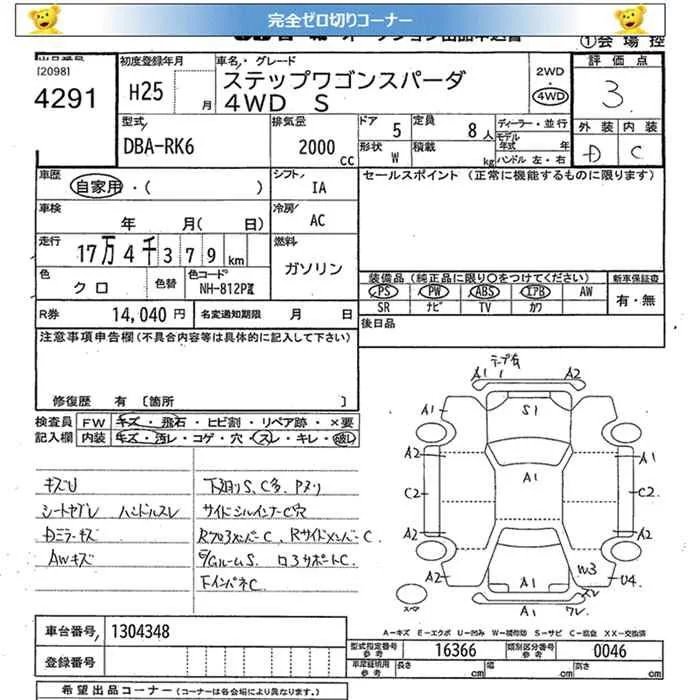 完全ゼロ切りコーナー
①会場控
[2098]
4291
初度登録年月
H25
月
車名・グレード
ステップワゴンスパーダ
4WD S
2WD
・
4WD
評価点
3
外装 内装
D C
型式
DBA-RK6
排気量
2000 cc
ドア 5
定員 8人
形状 W
積載 kg
ディーラー・並行
モデル年式 年
ハンドル 左・右
車歴
自家用・( )
シフト IA
セールスポイント (正常に機能するものに限ります)
車検
年 月( 日)
冷房 AC
走行
17万4千379km
燃料
ガソリン
色
クロ
色替
色コード
NH-812P
装備品(純正品に限り○をつけてください)
新車保証書
PS PW ABS エアB AW
SR ナビ TV カワ
有・無
R券 14,040円
名変通知期限 月 日
後日品
注意事項申告欄(不具合内容等は具体的に記入して下さい)
修復歴 有 [箇所 ]
検査員記入欄
FW キズ・飛石・ヒビ割・リペア跡・×要
内装 キズ・汚レ・コゲ・穴・スレ・キレ・破レ
キズU
シートヤブレ ハンドルスレ
Dミラーキズ
AWキズ
下廻りS、C多、Pヌリ
サイドシルインナーC穴
Rフロアメンバー C、Rサイドメンバー C
E/GルームS. コアサポートC.
FインパネC
テープ有
A1 1 A2
A1 S1 A2
A2 A1
C2 C2
A2 A2
A2 A1 W3 U4
スペア
A1
車台番号 1304348
登録番号
A-キズ E-エクボ U-凹み W-補修跡 S-サビ C-腐食 XX-交換済
型式指定番号参考 16366
類別区分番号参考 0046
車庫証明用参考 長さ cm 幅 cm 高さ cm
希望出品コーナー(コーナーは各会場により異なります。)